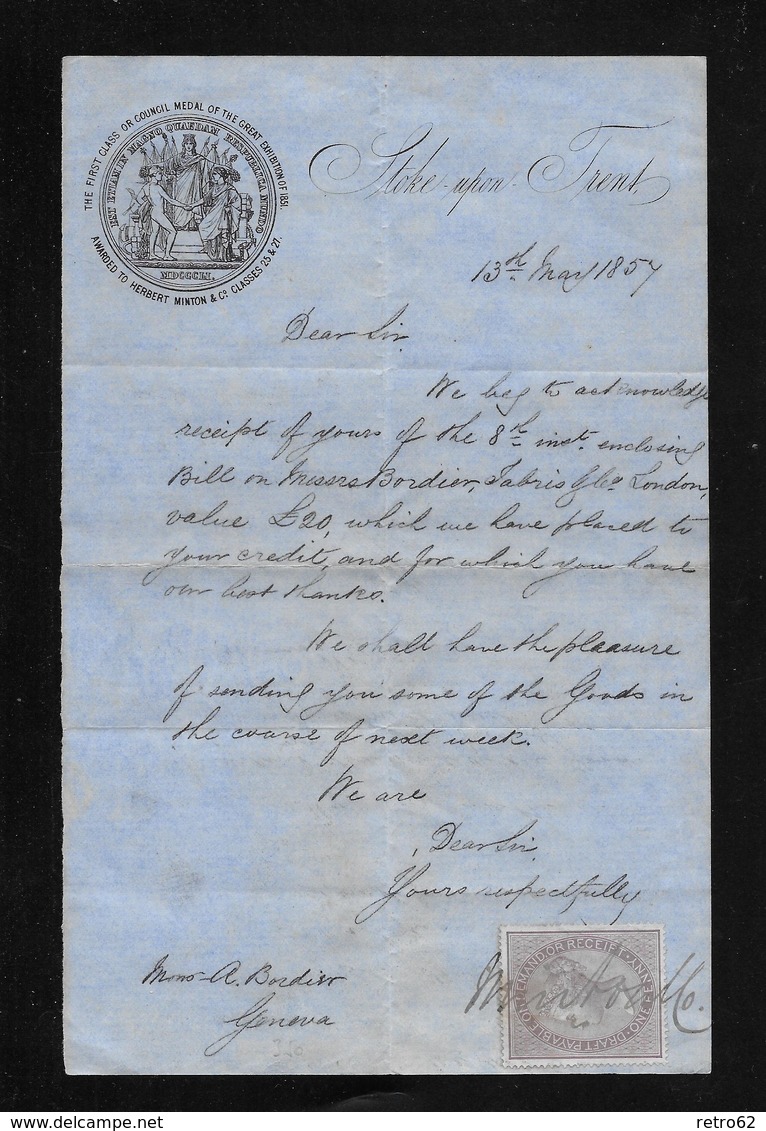 THE FIRST CLASS OR COUNCIL MEDAL OF THE GREAT EXHIBITION OF 1851.
AWARDED TO HERBERT MINTON & Co. CLASSES 25 & 27.
EST ETIAM IN MAGNO QUAEDAM RESPUBLICA MUNDO
MDCCCLI.
Stoke-upon-Trent
13th May 1857
Dear Sir.
We beg to acknowledge
receipt of yours of the 8th inst. enclosing
Bill on Messrs Bordier, & Co. London,
value £20, which we have placed to
your credit, and for which you have
our best thanks.
We shall have the pleasure
of sending you some of the Goods in
the course of next week.
We are
Dear Sir,
Yours respectfully
Minton & Co.
DRAFT PAYABLE ON DEMAND OR RECEIPT. ONE PENNY
Mons A. Bordier
Geneva
retro62
delcampe.net